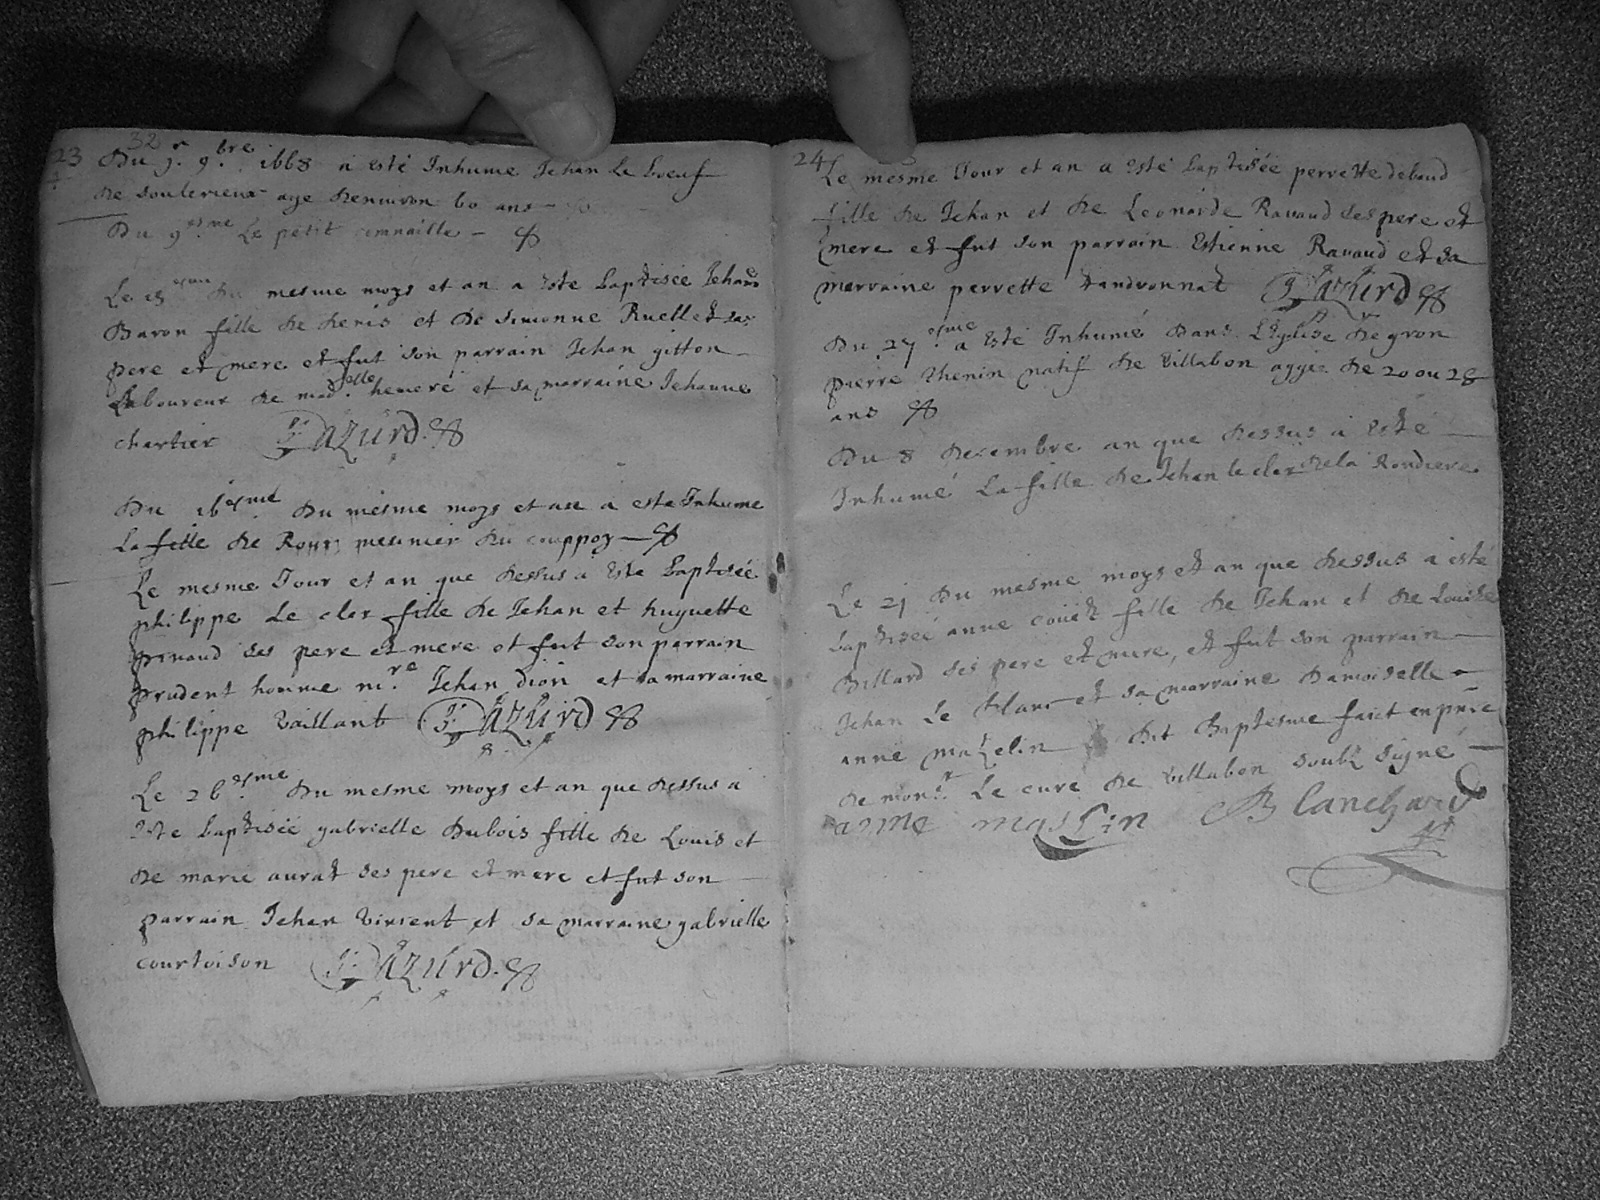 23
32
Du j.r 9.bre 1668 a esté Inhume Jehan Le boeuf
de soulerieux age denuiron 60 ans
Du 9.esme Le petit
Le 15 esme du mesme moys et an a este baptisée Jehane
Baron fille de denis et de Simonne Ruellet ses
pere et mere et fut son parrain Jehan gitton
Laboureur de mad.elle heuere et sa marraine Jehanne
chartier J. Azurd.
Du 16 esme Du mesme moys et an a este Inhume
La fille de Rour meunier du
Le mesme Jour et an que dessus a este baptisée
philippe Le cler fille de Jehan et huguette
pinaud ses pere et mere et fut son parrain
prudent homme m.re Jehan dion et sa marraine
philippe Vaillant J. AZurd
Le 26 esme Du mesme moys et an que dessus a
este baptisée gabrielle Dubois fille de Louis et
de marie aurat ses pere et mere et fut son
parrain Jehan Vincent et sa marraine gabrielle
courtoison J. AZurd.
24
Le mesme Jour et an a esté baptisée perrette debaud
fille de Jehan et de Leonarde Rauaud ses pere et
mere et fut son parrain Estienne Rauaud et sa
marraine perrette tandronnat J. AZurd
Du 27 esme a esté Inhumé dans L'Eglise de gron
pierre thenin natif de Villabon aggée de 20 ou 28
ans
Du 8 decembre an que dessus a Esté
Inhumé La fille de Jehan le cler de la Rondiere
Le 21 Du mesme moys et an que dessus a esté
baptisée anne couet fille de Jehan et de Louise
Billard ses pere et mere, et fut son parrain
Jehan Le blanc et sa marraine Damoiselle
anne maZelin dit Baptesme faict en pñce
de mons.r Le curé de Villabon soubz signé
anne masLin Blanchard